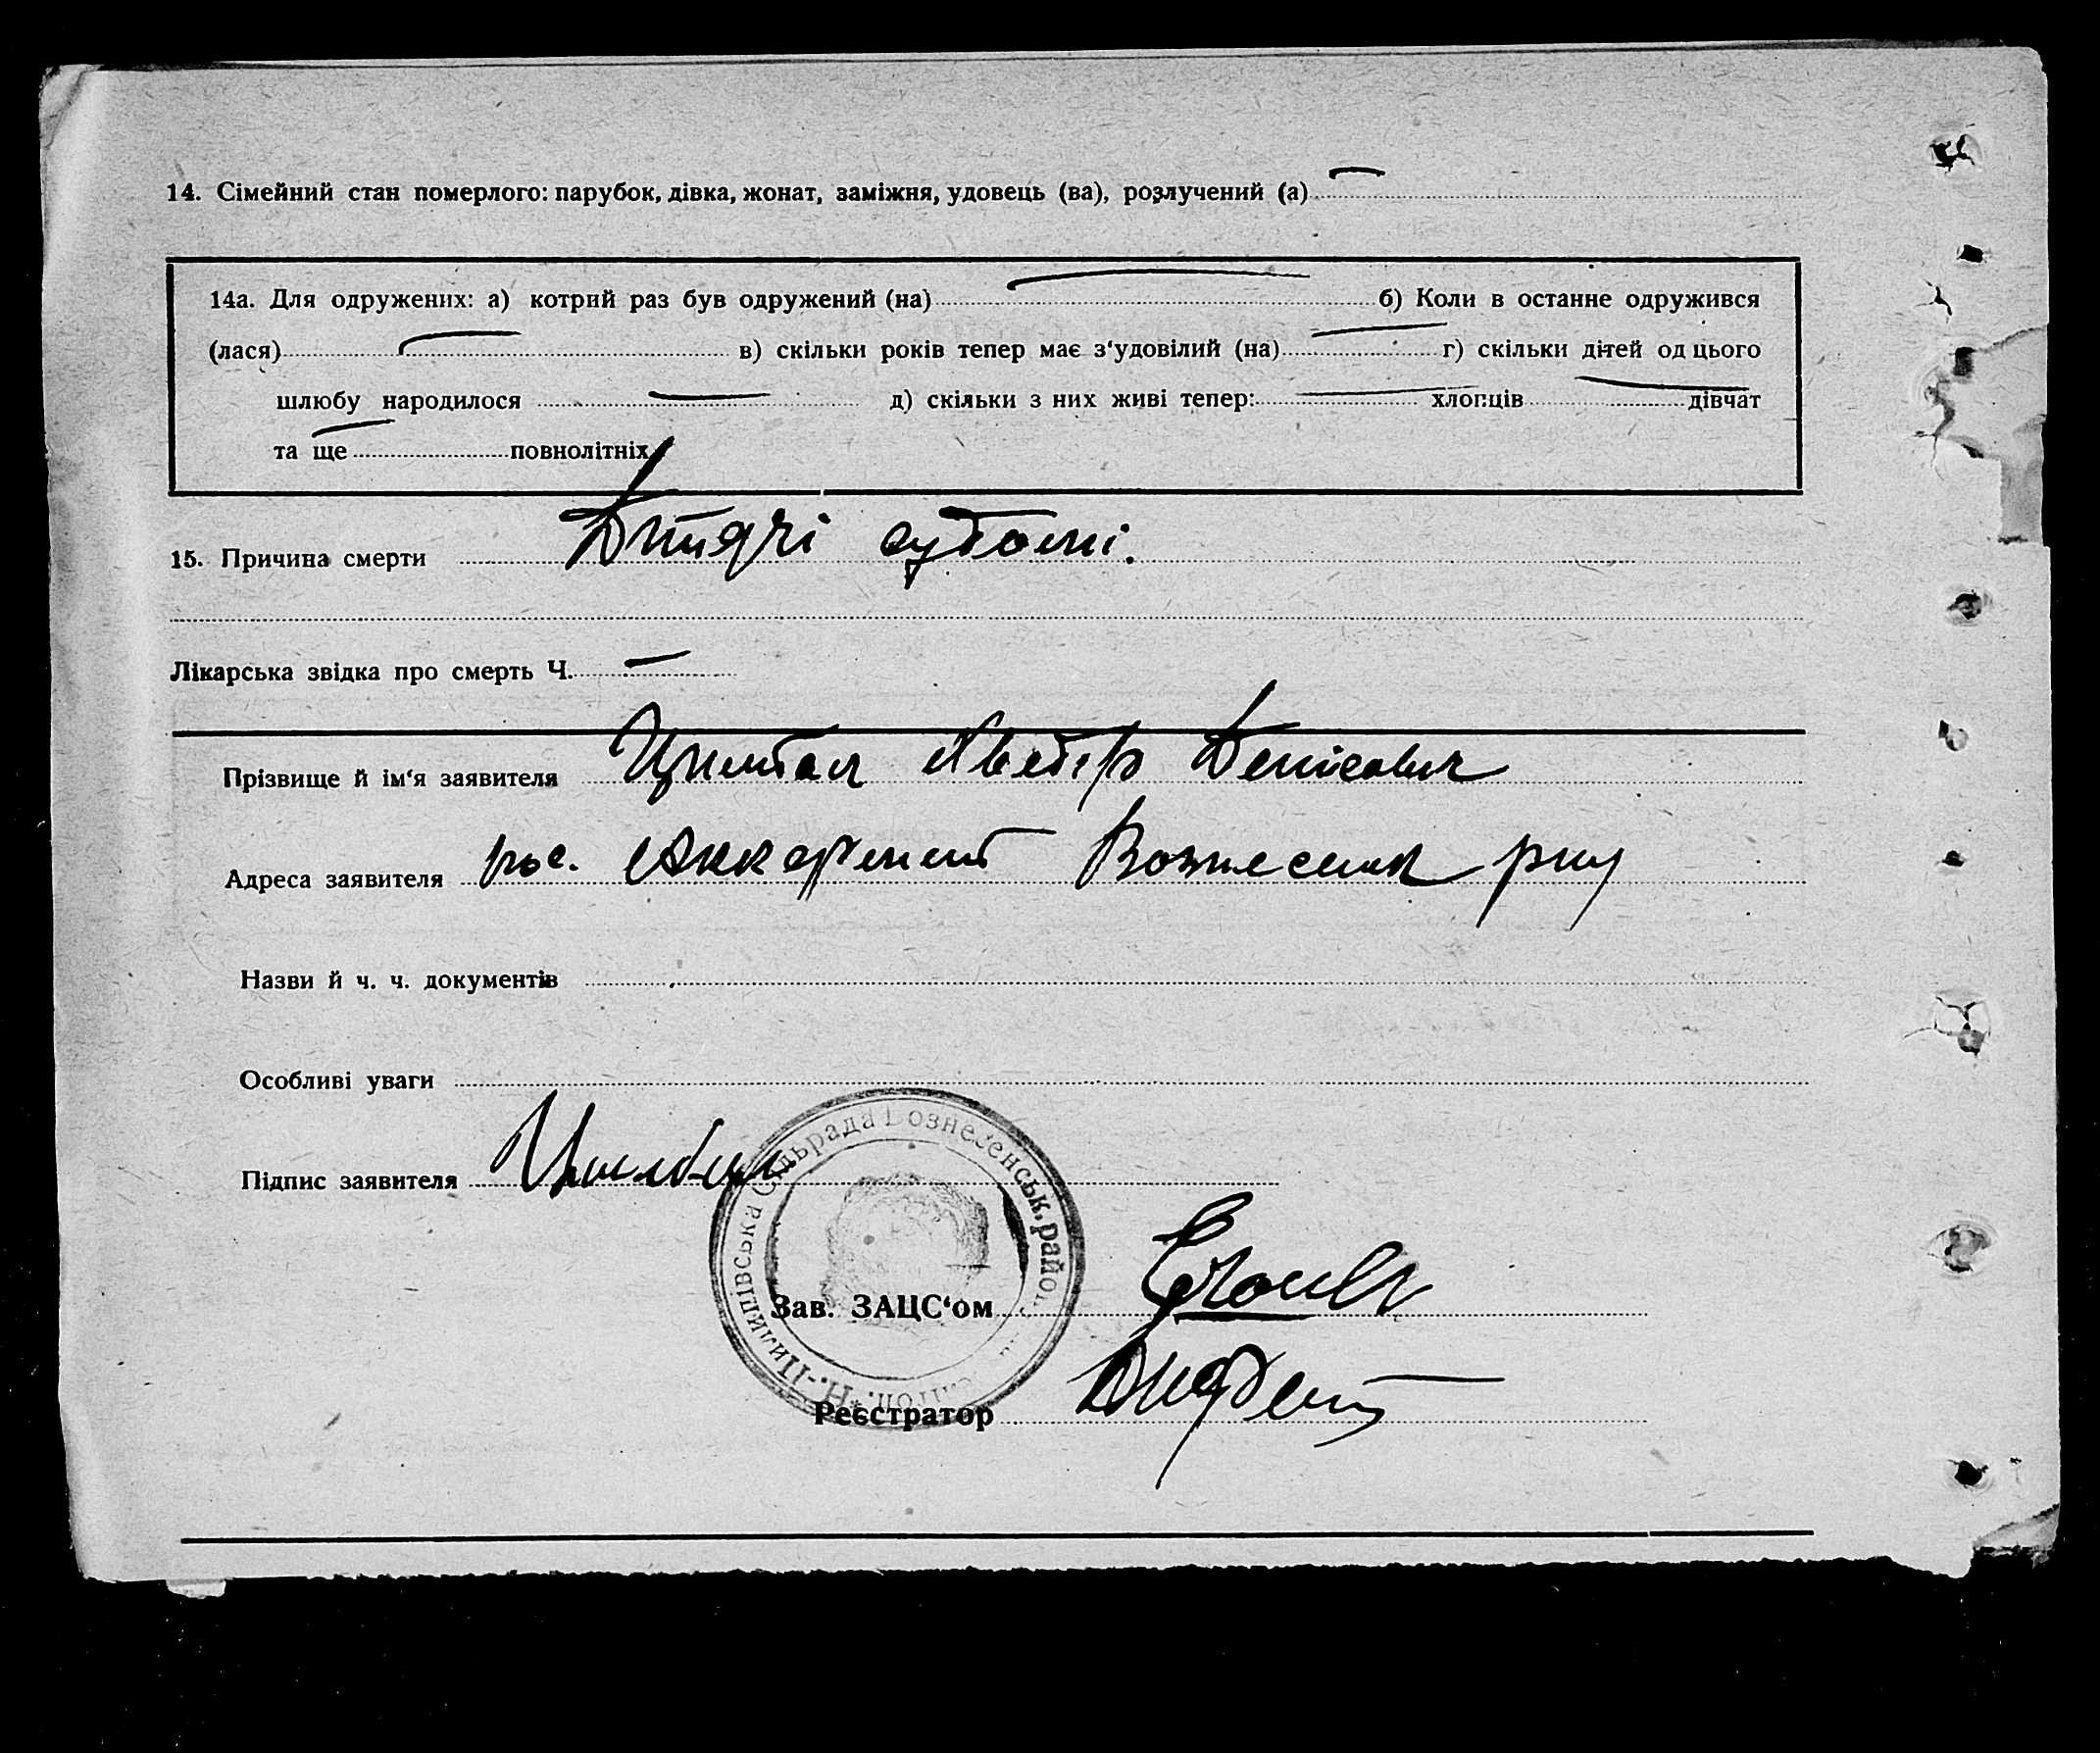 14. Сімейний стан померлого: парубок, дівка, жонат, заміжня, удовець (ва), розлучений (а)
14а. Для одружених: а) котрий раз був одружений (на) б) Коли в останнє одружився
(лася) в) скільки років тепер має з‘удовілий (на) г) скільки дітей од цього
шлюбу народилося д) скільки з них живі тепер: хлопців дівчат
та ще повнолітніх
15. Причина смерти Дитячі
Лікарська звідка про смерть Ч.
Прізвище й ім‘я заявителя Цимбал Денісович
Адреса заявителя Вознесенск рну
Назви й ч. ч. документів
Особливі уваги
Підпис заявителя Цимбал
Сільрада Вознесенськ. район
Зав. ЗАЦС‘ом
Реєстратор